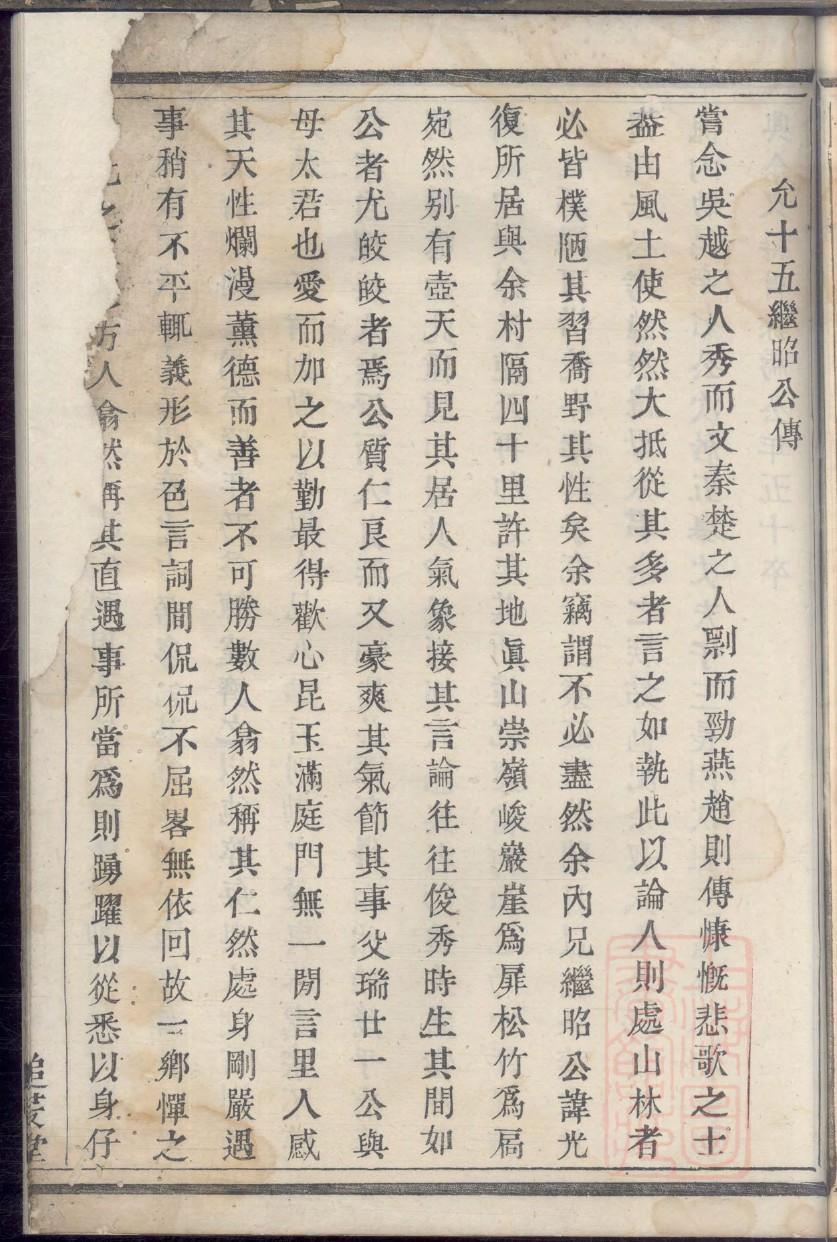 允十五繼昭公傳
嘗念吳越之人秀而文秦楚之人剽而勁燕趙則傳慷慨悲歌之士
葢由風土使然然大抵從其多者言之如執此以論人則處山林者
必皆樸陋其習喬野其性矣余竊謂不必盡然余內兄繼昭公諱光
復所居與余村隔四十里許其地眞山崇嶺峻巖崖爲扉松竹爲扃
宛然別有壺天而見其居人氣象接其言論往往俊秀時生其間如
公者尤皎皎者焉公質仁良而又豪爽其氣節其事父瑞廿一公與
母太君也愛而加之以勤最得歡心昆玉滿庭門無一閒言里人感
其天性爛漫薰德而善者不可勝數人翕然稱其仁然處身剛嚴遇
事稍有不平輒義形於色言詞間侃侃不屈畧無依回故一鄉憚之
方人翕然稱其直遇事所當爲則踴躍以從悉以身仔
追芠堂